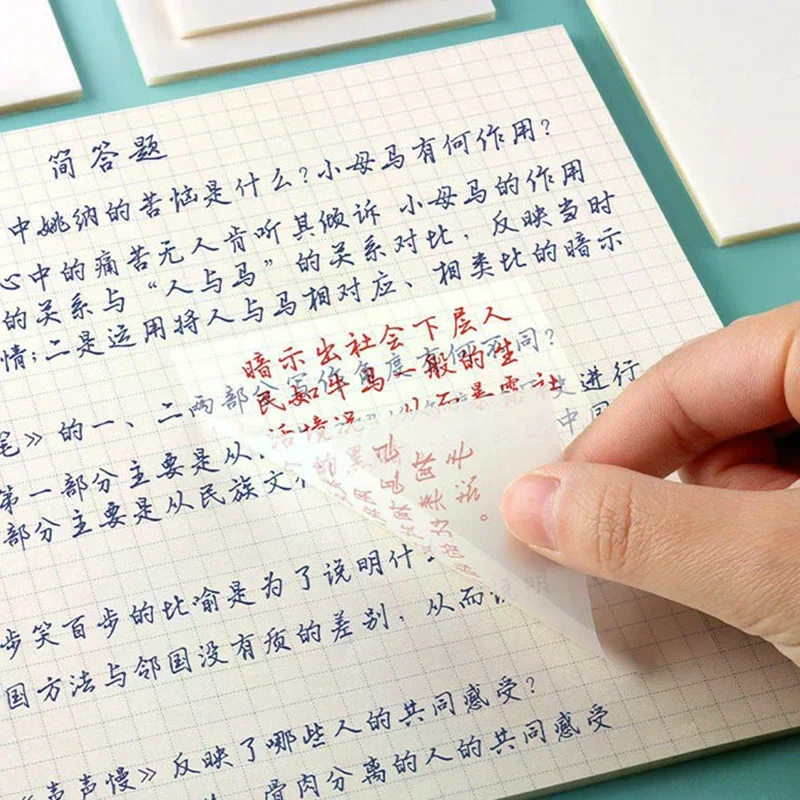 简答题
中姚纳的苦恼是什么?小母马有何作用?
心中的痛苦无人肯听其倾诉 小母马的作用
的关系与“人与马”的关系对比,反映当时
情;二是运用将人与马相对应、相类比的暗示
暗示出社会下层人
民如牛马一般的生
活境况
笔》的一、二两部分写作角度有何不同?
第一部分主要是从
史进行
部分主要是从民族文
中国
步笑百步的比喻是为了说明什
国方法与邻国没有质的差别,从而说明
《声声慢》反映了哪些人的共同感受?
骨肉分离的人的共同感受